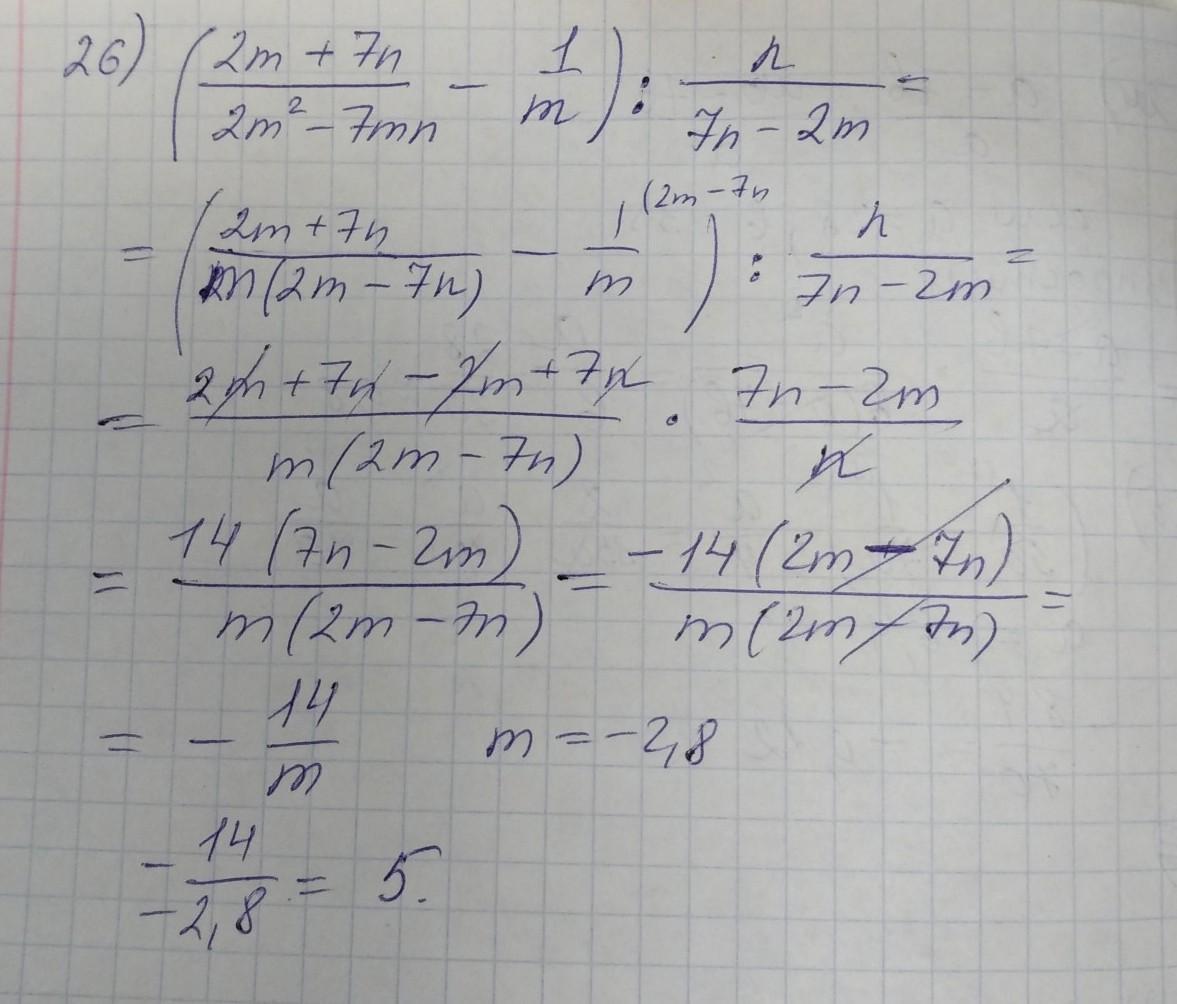 26) ((2m + 7n)/(2m² - 7mn) - 1/m) : n/(7n - 2m) =
= ((2m + 7n)/(m(2m - 7n)) - 1/m (2m - 7n) : n/(7n - 2m) =
= (2m + 7n - 2m + 7n)/(m(2m - 7n)) · (7n - 2m)/n
= 14(7n - 2m)/(m(2m - 7n)) = -14(2m - 7n)/(m(2m - 7n)) =
= - 14/m m = -2,8
- 14/-2,8 = 5.